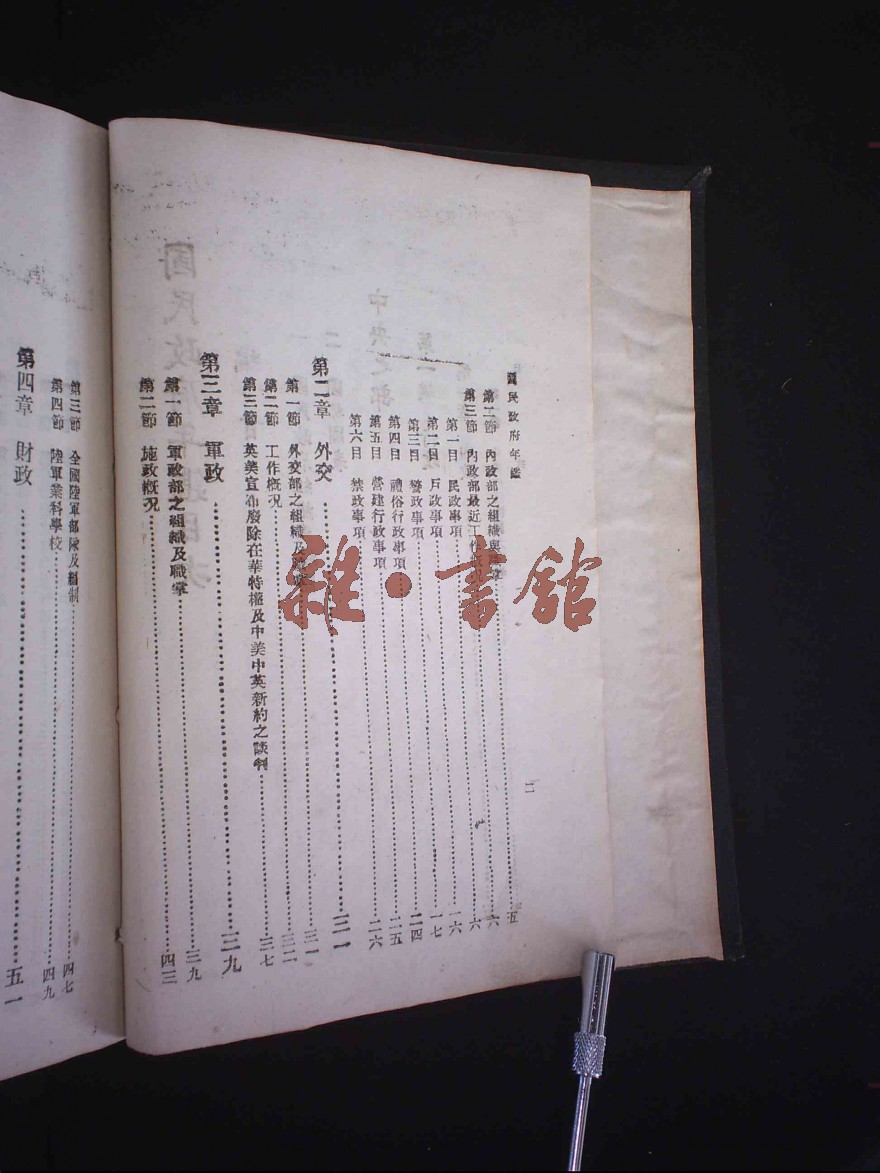 國民政府年鑑
二
第二節 內政部之組織與職掌 五
第三節 內政部最近工作概況 六
第一目 民政事項 六
第二目 戶政事項 一六
第三目 警政事項 一七
第四目 禮俗行政事項 二四
第五目 營建行政事項 二五
第六目 禁政事項 二六
第二章 外交 三一
第一節 外交部之組織及 三一
第二節 工作概況 三二
第三節 英美宣布廢除在華特權及中美中英新約之談判 三七
第三章 軍政 三九
第一節 軍政部之組織及職掌 三九
第二節 施政概況 四三
第三節 全國陸軍部隊及編制 四七
第四節 陸軍業科學校 四九
第四章 財政 五一
雜·書館